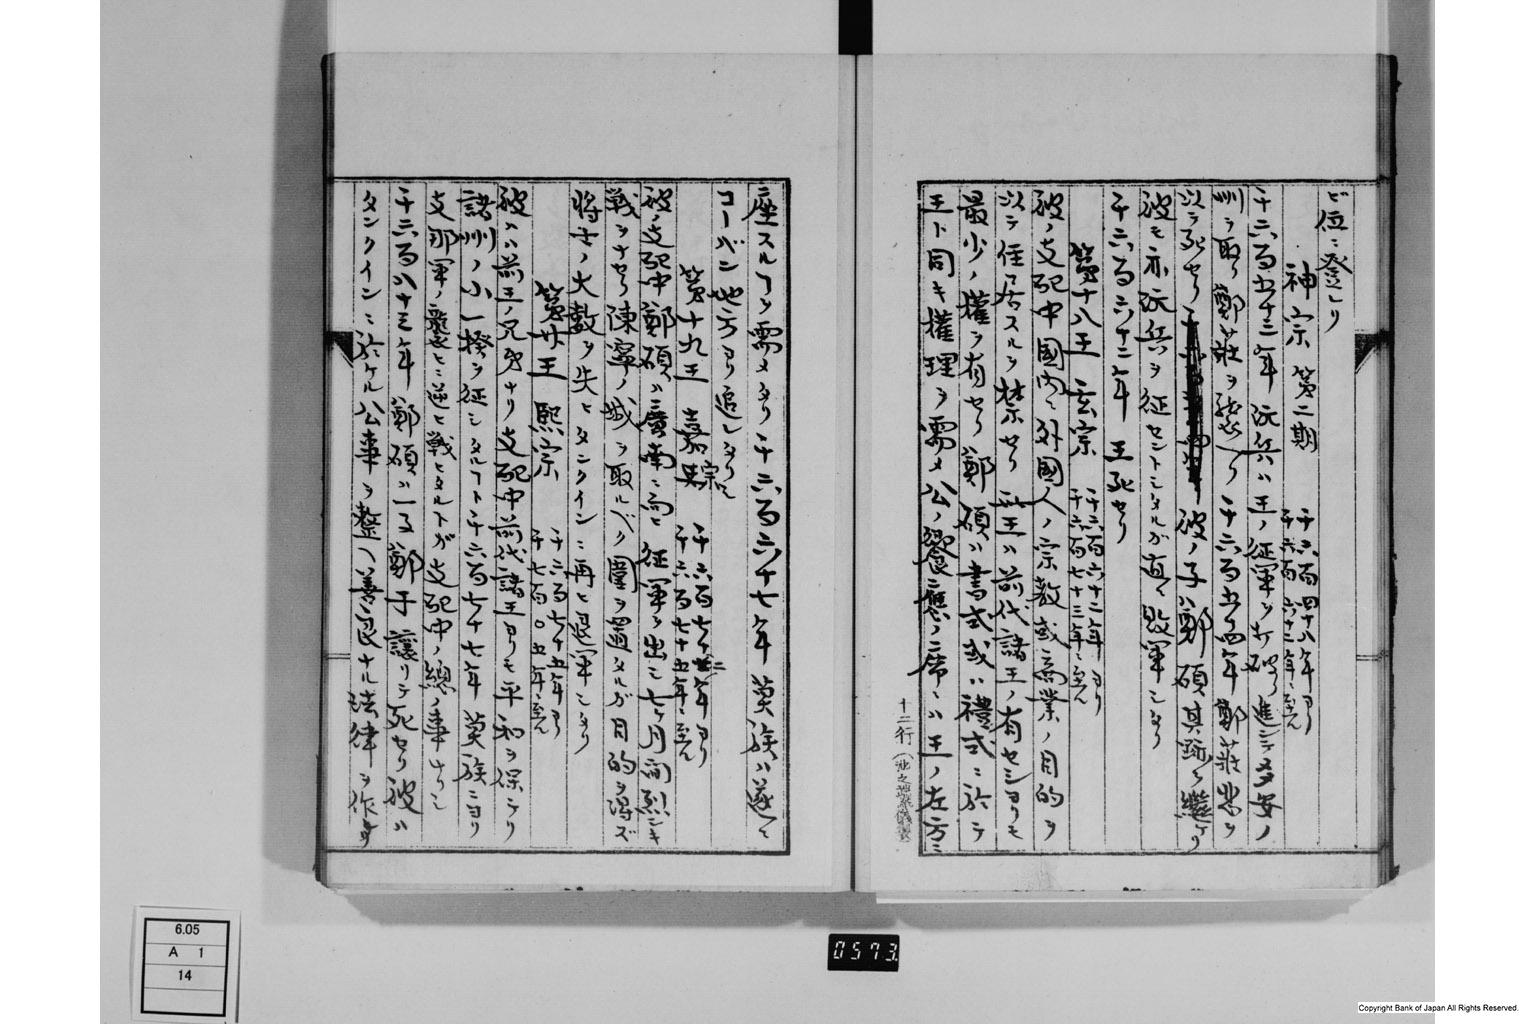 ビ位ニ登レリ
神宗 第二期 千六百四十八年ヨリ
千六百六十二年ニ至ル
千六百五十三年阮兵ハ王ノ征軍ヲ打破リ進ンデメ安ノ
州ヲ取リ鄭荘ヲ襲ヘリ千六百五十四年鄭荘悲ヲ
以テ死セリ 彼ノ子ハ鄭碩其跡ヲ継ケリ
彼モ亦阮兵ヲ征セントシタルガ直ニ敗軍シタリ
千六百六十二年王死セリ
第十八王 玄宗 千六百六十二年ヨリ
千六百七十三年ニ至ル
彼ノ支配中國内ニ外國人ノ宗教或商業ノ目的ヲ
以テ住居スルヲ禁セリ 此王ハ前代諸王ノ有セシヨリモ
最少ノ權ヲ有セリ鄭碩ハ書式或ハ禮式ニ於テ
王ト同キ權理ヲ需メ公ノ饗應ノ席ニハ王ノ左方ニ
十二行
座スルヿヲ需メタリ千六百六十七年莫族ハ遂ニ
コーバン地方ヨリ追レタリ
第十九王 嘉宗 千六百七十二年ヨリ
千六百七十五年ニ至ル
彼ノ支配中鄭碩ハ廣南ニ向ヒ征軍ヲ出シ七ヶ月間烈シキ
戦ヲナセリ陳寧ノ城ヲ取ルベク圍ヲ置タルガ目的ヲ得ズ
将士ノ大数ヲ失ヒタンクインニ再ヒ退軍シタリ
第廿王 熙宗 千六百七十五年ヨリ
千七百〇五年ニ至ル
彼ハ前王ノ兄弟ナリ支配中前代諸王ヨリモ平和ヲ保テリ
諸州ノ小一揆ヲ征シタルヿト千六百七十七年莫族ニヨリ
支那軍ノ襲ヒニ逆ヒ戦ヒタルトガ支配中ノ總ノ事ナリシ
千六百八十三年鄭碩ハ 鄭 子讓リテ死セリ彼ハ
タンクインニ於ケル公事ヲ整ヘ善良ナル法律ヲ作
0573
6.05
A 1
14
Copyright Bank of Japan All Rights Reserved.